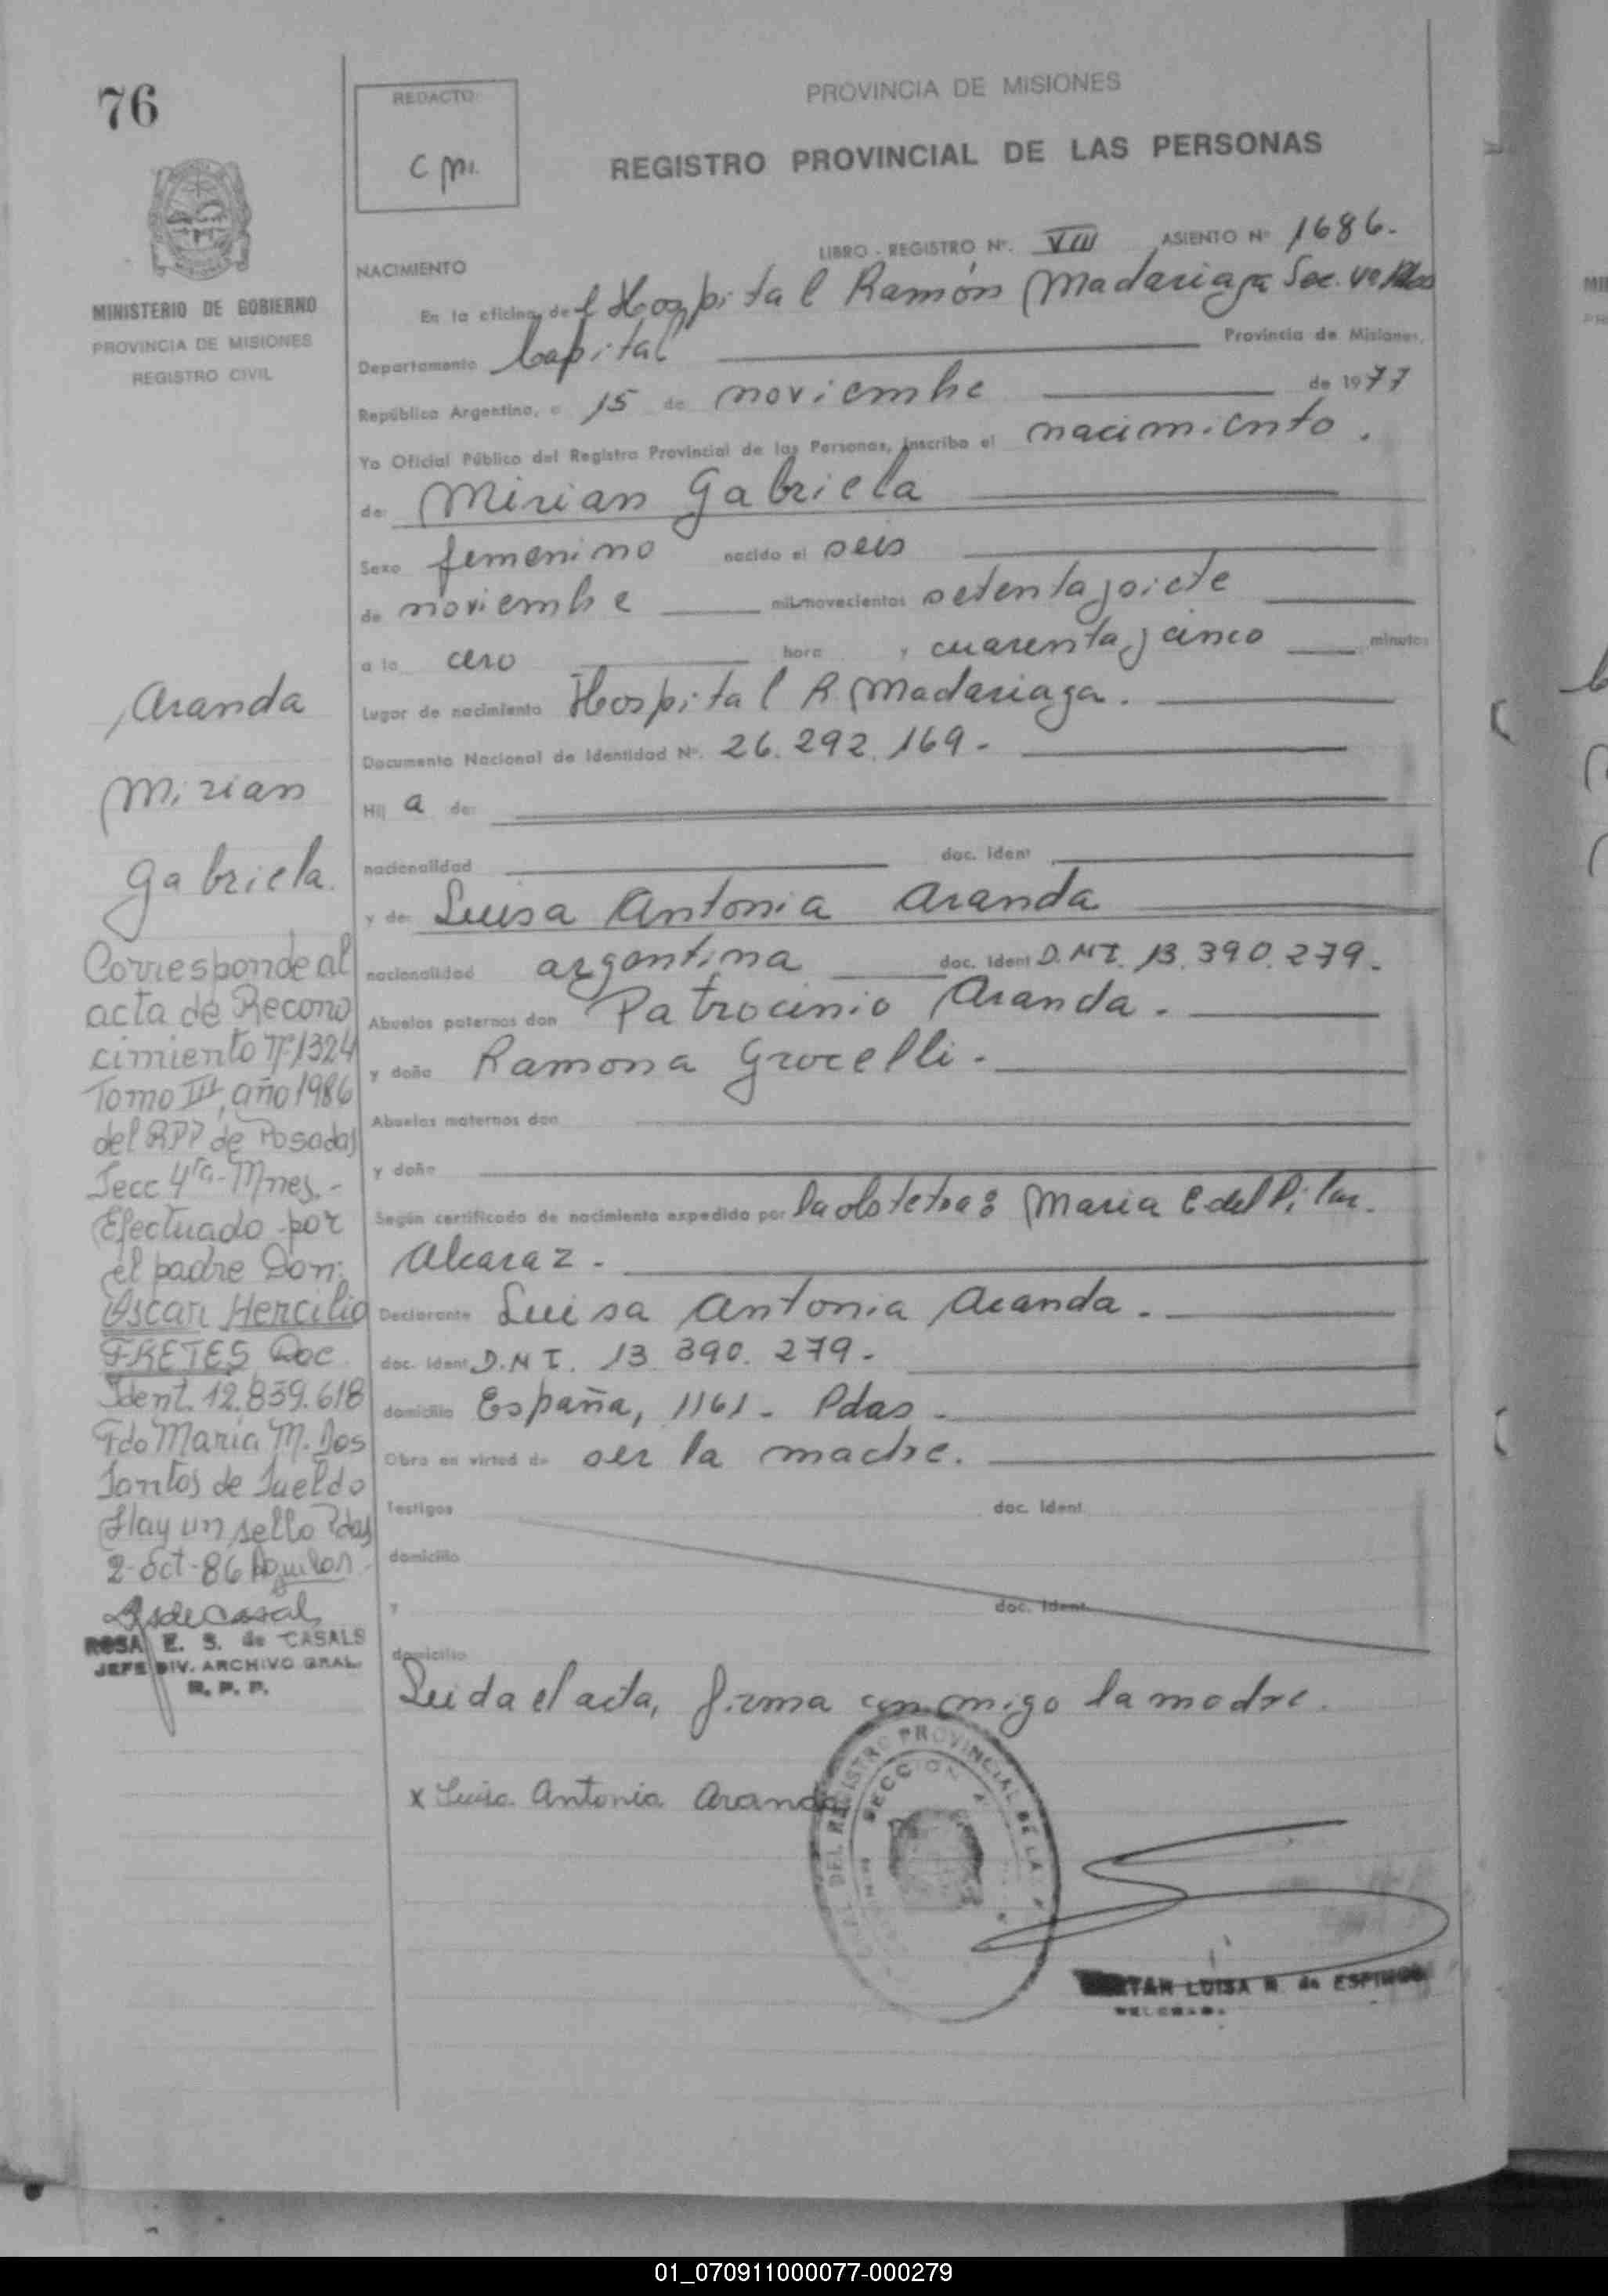 76
REDACTO
C M.
PROVINCIA DE MISIONES
REGISTRO PROVINCIAL DE LAS PERSONAS
MINISTERIO DE GOBIERNO
PROVINCIA DE MISIONES
REGISTRO CIVIL
LIBRO - REGISTRO Nº. VIII ASIENTO Nº 1686.-
NACIMIENTO
En la oficina de l Hospital Ramón Madariaga Sec. Vª Pdas
Departamento Capital Provincia de Misiones,
República Argentina, a 15 de noviembre de 1977
Yo Oficial Público del Registro Provincial de las Personas, inscribo el nacimiento.
de Mirian Gabriela
Sexo femenino nacido el seis
de noviembre mil novecientos setenta y siete
a la cero hora y cuarenta y cinco minutos
Lugar de nacimiento Hospital R. Madariaga.
Documento Nacional de Identidad Nº. 26.292.169.-
Hij a de:
nacionalidad doc. ident
y de: Luisa Antonia Aranda
nacionalidad argentina doc. ident D.N.I. 13.390.279.
Abuelos paternos don Patrocinio Aranda.
y doña Ramona Grocelli.-
Abuelos maternos don
y doña
Según certificado de nacimiento expedido por la obstetra: Maria C. del Pilar.
Alcaraz.-
Declarante Luisa Antonia Aranda.-
doc. ident D.N.I. 13.390.279.-
domicilio España, 1161.- Pdas.-
Obra en virtud de ser la madre.
Testigos doc. ident
domicilio
y doc. ident
domicilio
Leida el acta, firma conmigo la madre.
x Luisa Antonia Aranda
DEL REGISTRO PROVINCIAL DE LA
SECCION
LUISA N. de ESPINOSA
Aranda
Mirian
Gabriela.
Corresponde al
acta de Recono
cimiento Nº 1324
Tomo III, año 1986
del RPP de Posadas
Secc 4ra - Mnes.-
Efectuado por
el padre Don:
Oscar Hercilio
FRETES Doc
Ident. 12.839.618
Fdo Maria M. Dos
Santos de Sueldo
Hay un sello Pdas
2-Oct-86 Aguilar
ROSA E. S. de CASALS
JEFE DIV. ARCHIVO GRAL.
R. P. P.
01_070911000077-000279